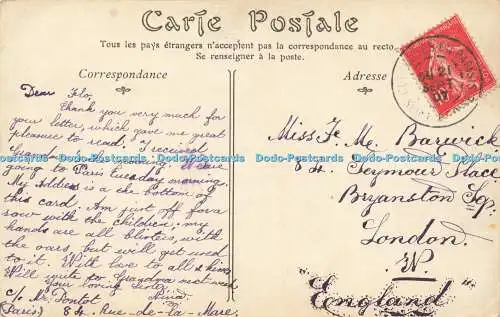 Carte Postale
Tous les pays étrangers n'acceptent pas la correspondance au recto.
Se renseigner à la poste.
Correspondance
Adresse
Dear Flo,
Thank you very much for
your letter, which gave me great
pleasure to read. I received
morning. We are
going to Paris tuesday morning.
My Address is a the bottom of
this card. Am just off for a
row with the children. my
hands are all blisters, with
the oars, but will get used
to it. With love to all & kisses
Will write to Grandma next week
Your loving Sister
c/o Mr. Pontot
(Paris) 84. Rue-de-la-Mare.
Miss F. M. Barwick
84. Seymour Place
Bryanston Sq.
London.
W.
"England"
21
07
Dodo-Postcards Dodo-Postcards Dodo-Postcards Dodo-Postcards Dodo-Postcards